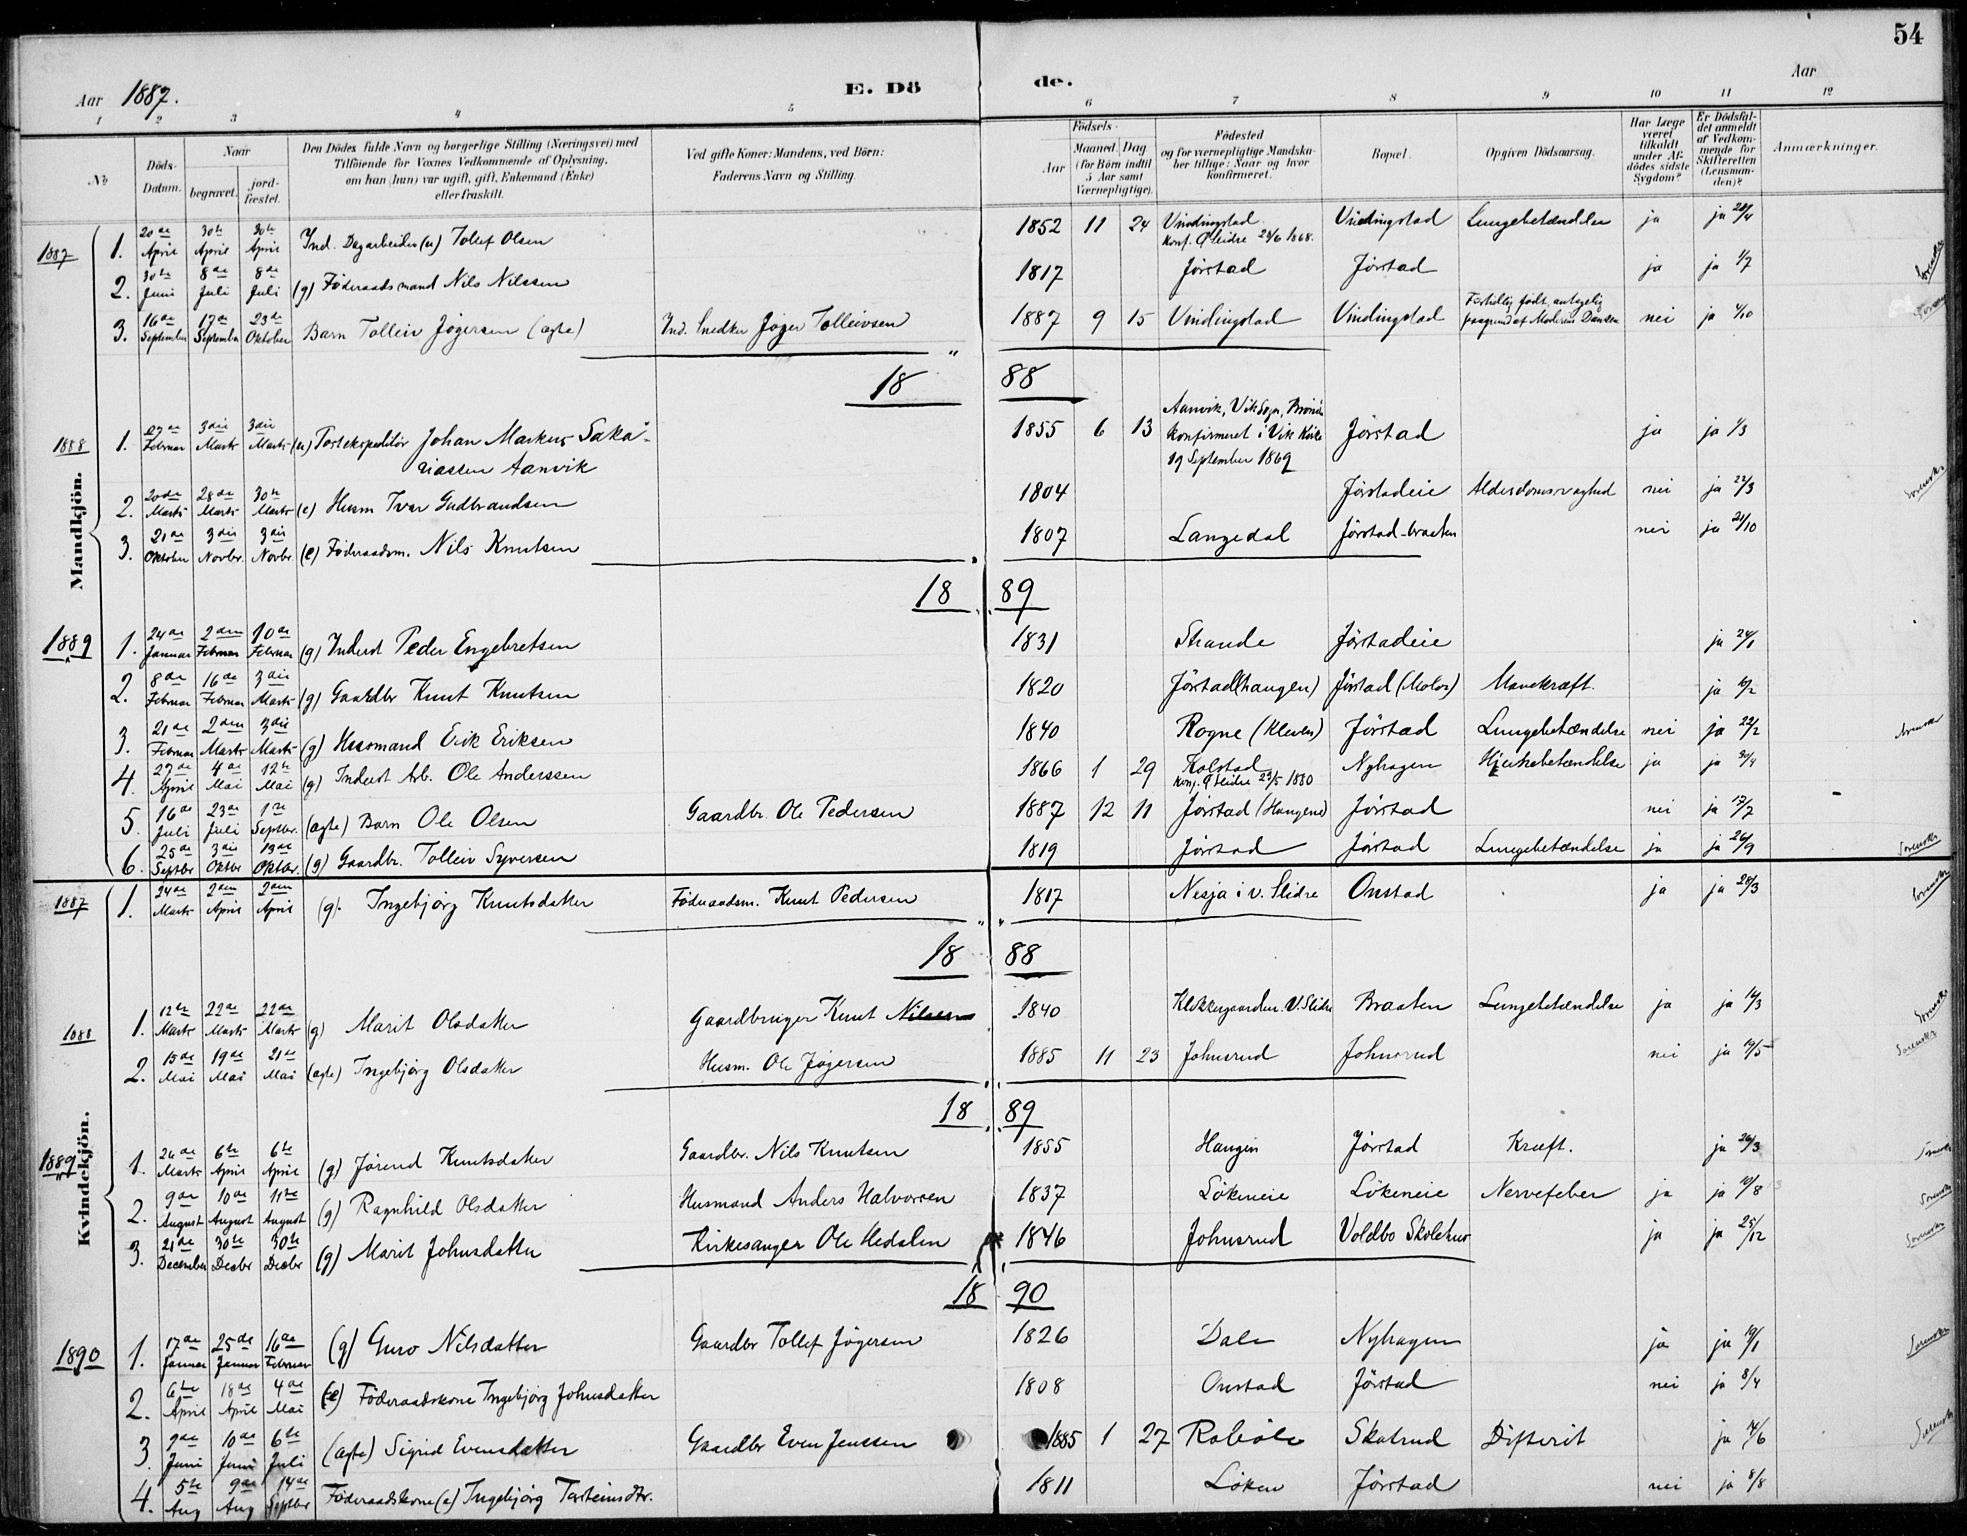 54
Aar 1887. E. Dö de. Aar
1 2 3 4 5 6 7 8 9 10 11 12
No
Döds-Datum.
Naar
begravet.
jord-fæstet.
Den Dödes fulde Navn og borgerlige Stilling (Næringsvei) med
Tilföiende for Voxnes Vedkommende af Oplysning,
om han (hun) var ugift, gift, Enkemand (Enke)
eller fraskilt.
Ved gifte Koner: Mandens, ved Börn:
Faderens Navn og Stilling.
Födsels-
Aar
Maaned. Dag
(for Börn indtil
5 Aar samt
Værnepligtige).
Födested
og for værnepligtige Mandska-
ber tillige: Naar og hvor
konfirmeret.
Bopæl.
Opgiven Dödsaarsag.
Har Læge
været
tilkaldt
under Af-
dödes sidste
Sygdom?
Er Dödsfal-
det anmeldt
af Vedkom-
mende for
Skifteretten
(Lensman-
den)?
Anmærkninger.
Mandkjön.
1887 1. 20de April 30te April 30te April Ind. Dagarbeider (u) Tollef Olsen 1852 11 24 Vindingstad konf. Ø Slidre 23/6 1868. Vindingstad Lungebetændelse ja ja 28/4
2. 30te Juni 8de Juli 8de Juli (g) Föderaadsmand Nils Nilssen 1817 Jørstad Jørstad ja ja 1/7
3. 16de September 17de September 23de Oktober Barn Tolleiv Jøgersen (ægte) Ind. Snedker Jøger Tolleivsen 1887 9 15 Vindingstad Vindingstad Fortidlig født, antagelig paagrund af Moderens Dansen nei ja 4/10
18 88
1888 1. 27de Februar 3die Marts 3die Marts (u) Postekspeditör Johan Markus Saka-
riassen Aanvik 1855 6 13 Aanvik, Vik Sogn, konfirmeret i Vik Kirke 19 September 1869 Jørstad ja ja 1/3
2. 20de Marts 28de Marts 30te Marts (e) Husm Ivar Gudbrandsen 1804 Jørstadeie Alderdomssvaghed nei ja 22/3
3. 21de Oktober 3die Novbr. 3die Novbr. (e) Föderaadsm. Nils Knutsen 1807 Langedal Jørstad-braaten nei ja 21/10
18 89
1889 1. 24de Januar 2den Februar 10de Februar (g) Inderst Peder Engebretsen 1831 Strande Jørstadeie ja 24/1
2. 8de Februar 16de Februar 3die Marts (g) Gaardbr Knut Knutsen 1820 Jørstad (haugen) Jørstad (Moløs) Mavekræft. ja 10/2
3. 21de Februar 2den Marts 3die Marts (g) Husmand Erik Eriksen 1840 Rogne (Kleven) Jørstad Lungebetændelse nei ja 22/2
4. 27de April 4de Mai 12te Mai (g) Inderst Arb. Ole Anderssen 1866 1 29 Kolstad konf. Ø Slidre 23/5 1880 Nyhagen Hjertebetændelse ja ja 30/4
5. 16de Juli 23de Juli 1ste Septbr. (ægte) Barn Ole Olsen Gaardbr. Ole Pedersen 1887 12 11 Jørstad (Haugene) Jørstad nei ja 17/7
6. 25de Septbr 3die Oktbr 13de Oktbr. (g) Gaardbr. Tolleiv Syversen 1819 Jørstad Jørstad Lungebetændelse ja ja 26/9
Kvindekjön.
1887 1. 24de Marts 2den April 2den April (g). Ingebjørg Knutsdatter Föderaadsm. Knut Pedersen 1817 Nesja i V. Slidre Onstad ja ja 28/3
18 88
1888 1. 12te Marts 22de Marts 22de Marts (g) Marit Olsdatter Gaardbruger Knut Nilsen 1840 Klokkergaarden. V. Slidre Braaten Lungebetændelse ja ja 14/3
2. 15de Mai 19de Mai 21de Mai (ægte) Ingebjørg Olsdatter Husm. Ole Jøgersen 1885 11 23 Johnsrud Johnsrud nei ja 17/5
18 89
1889 1. 26de Marts 6te April 6te April (g) Jørend Knutsdatter Gaardbr. Nils Knutsen 1855 Haugen Jørstad Kræft. ja 26/3
2. 9de August 10de August 11te August (g) Ragnhild Olsdatter Husmand Anders Halvorsen 1837 Løkeneie Løkeneie Nervefeber ja ja 10/8
3. 21de December 30te Decbr 30te Decbr (g) Marit Johnsdatter Kirkesanger Ole Hedalen 1846 Johnsrud Voldbo Skolehus ja ja 25/12
18 90
1890 1. 17de Januar 25de Januar 16de Februar (g) Guro Nilsdatter Gaardbr Tollef Jøgersen 1826 Dale Nyhagen ja ja 19/1
2. 6te April 18de April 4de Mai (e) Föderaadskone Ingebjørg Johnsdatter 1808 Onstad Jørstad nei ja 8/4
3. 7de Juni 10de Juni 6te Juli (ægte) Sigrid Evensdatter Gaardbr Even Jenssen 1885 1 27 Robøle Skatrud Difterit ja 7/6
4. 5te Aug 9de Aug 14de Septbr Föderaadskone (e) Ingebjørg Torsteinsdtr. 1811 Løken Jørstad nei ja 8/8